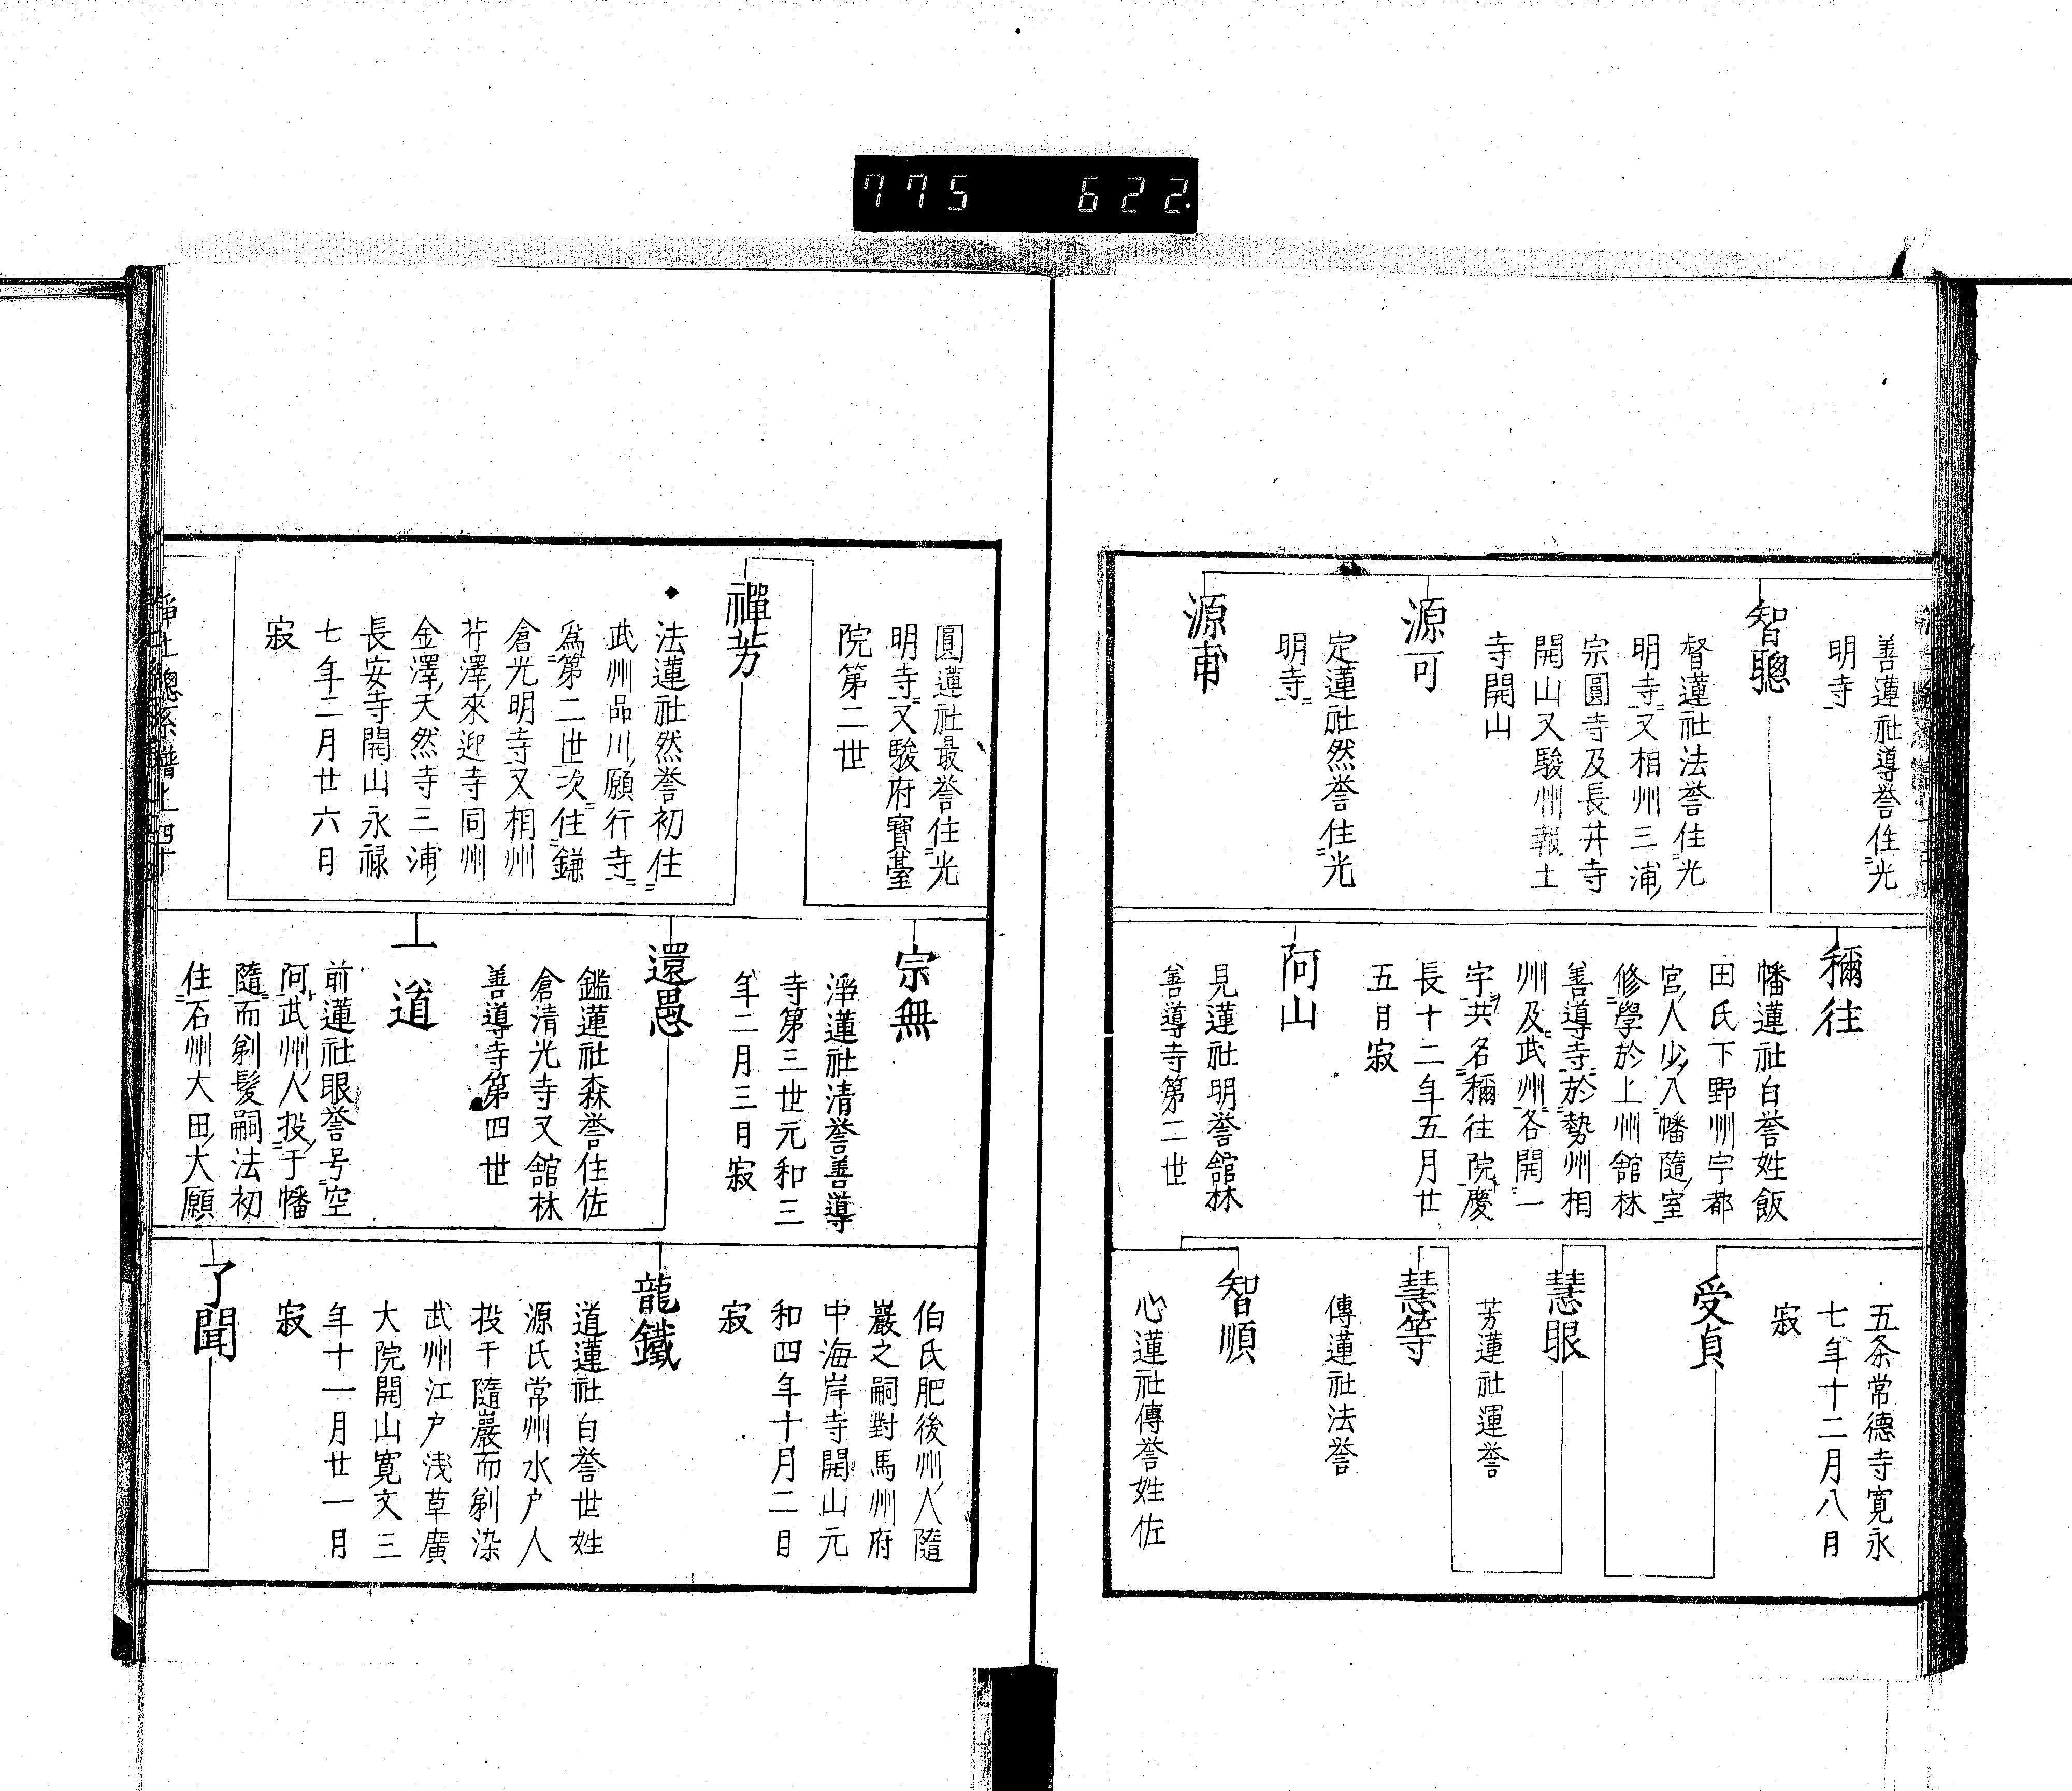 775 622.
善蓮社導誉住光
明寺
智聰
督蓮社法誉住光
明寺又相州三浦
宗圓寺及長井寺
開山又駿州報土
寺開山
源可
定蓮社然誉住光
明寺
源甫
稱往
幡蓮社白誉姓飯
田氏下野州宇都
宮人少入幡隨室
修學於上州舘林
善導寺於勢州相
州及武州各開一
宇共名稱往院慶
長十二年五月廿
五日寂
阿山
見蓮社明誉舘林
善導寺第二世
五条常德寺寛永
七年十二月八日
寂
受貞
慧眼
芳蓮社運誉
慧等
傳蓮社法誉
智順
心蓮社傳誉姓佐
圓蓮社最誉住光
明寺又駿府寶臺
院第二世
禪芳
法蓮社然誉初住
武州品川願行寺
為第二世次住鎌
倉光明寺又相州
芹澤來迎寺同州
金澤天然寺三浦
長安寺開山永禄
七年二月廿六日
寂
宗無
淨蓮社清誉善導
寺第三世元和三
年二月三日寂
還愚
鑑蓮社森誉住佐
倉清光寺又舘林
善導寺第四世
一道
前蓮社眼誉号空
阿武州人投于幡
隨而剃髪嗣法初
住石州大田大願
伯氏肥後州人隨
巖之嗣對馬州府
中海岸寺開山元
和四年十月二日
寂
龍鐵
道蓮社白誉世姓
源氏常州水户人
投干隨巖而剃染
武州江户浅草廣
大院開山寛文三
年十一月廿一日
寂
了聞
淨土總系譜上四十